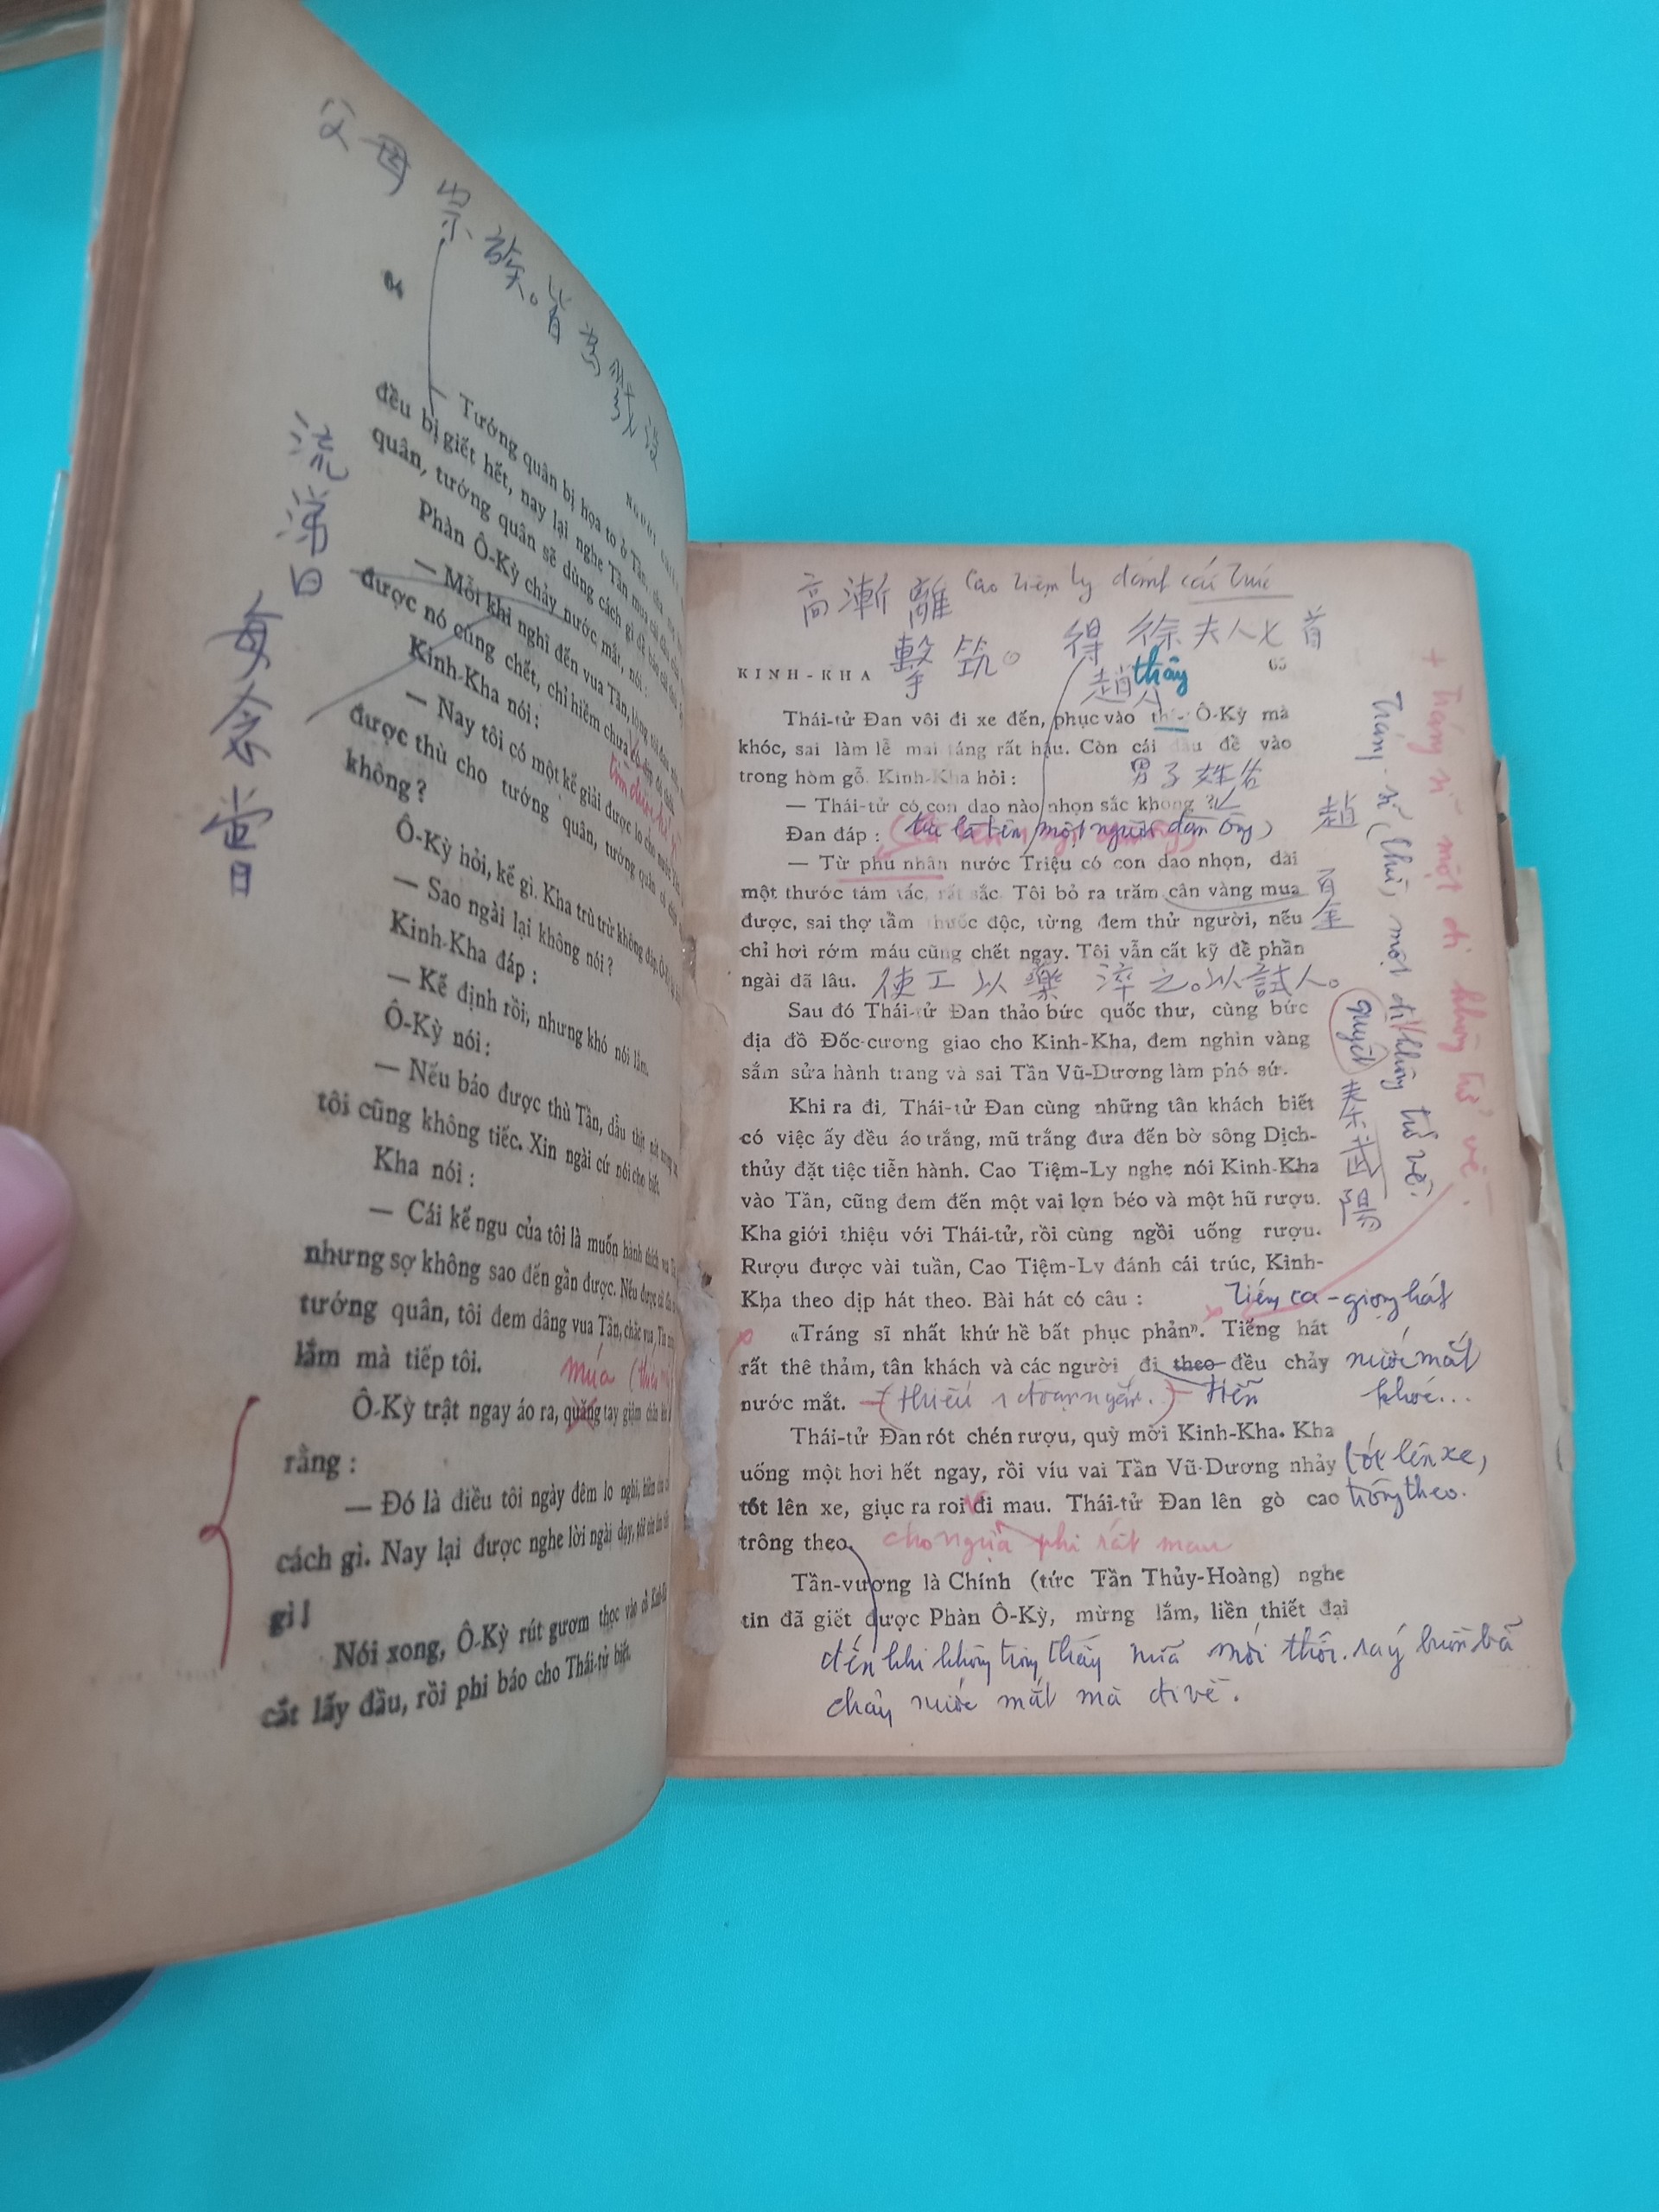 父母宗族。皆為戮沒
流涕曰
每念常日
— Tướng quân bị họa to ở Tần,
đều bị giết hết, nay lại nghe Tần mua cái đầu của
quân, tướng quân sẽ dùng cách gì để báo
Phàn Ô-Kỳ chảy nước mắt, nói :
— Mỗi khi nghĩ đến vua Tần, lòng tôi đau
được nó cũng chết, chỉ hiềm chưa có dịp
Kinh-Kha nói :
— Nay tôi có một kế giải được lo cho nước Yên,
được thù cho tướng quân, tướng quân có
không ?
Ô-Kỳ hỏi, kế gì. Kha trù trừ không đáp. Ô-Kỳ
— Sao ngài lại không nói ?
Kinh-Kha đáp :
— Kế định rồi, nhưng khó nói lắm.
Ô-Kỳ nói :
— Nếu báo được thù Tần, dầu thịt nát xương
tôi cũng không tiếc. Xin ngài cứ nói cho biết.
Kha nói :
— Cái kế ngu của tôi là muốn hành thích vua
nhưng sợ không sao đến gần được. Nếu được cái đầu
tướng quân, tôi đem dâng vua Tần, chắc vua Tần
lắm mà tiếp tôi.
múa
Ô-Kỳ trật ngay áo ra, quăng tay giậm chân
rằng :
— Đó là điều tôi ngày đêm lo nghĩ,
cách gì. Nay lại được nghe lời ngài dạy, tôi
gì !
Nói xong, Ô-Kỳ rút gươm thọc vào cổ. Kinh-Kha
cắt lấy đầu, rồi phi báo cho Thái-tử biết.
高漸離 Cao Tiệm Ly đánh cái trúc
擊筑。 得徐夫人匕首
KINH-KHA
趙人
thây
65
Thái-tử Đan vôi đi xe đến, phục vào Ô-Kỳ mà
khóc, sai làm lễ mai táng rất hậu. Còn cái đầu để vào
trong hòm gỗ. Kinh-Kha hỏi :
男子姓名
— Thái-tử có con dao nào nhọn sắc không ?
Đan đáp : (từ là tên một người đàn ông)
趙
— Từ phu nhân nước Triệu có con dao nhọn, dài
một thước tám tấc, rất sắc. Tôi bỏ ra trăm cân vàng mua
百金
được, sai thợ tầm thuốc độc, từng đem thử người, nếu
chỉ hơi rớm máu cũng chết ngay. Tôi vẫn cất kỹ để phần
ngài đã lâu. 使工以藥淬之。以試人。
Sau đó Thái-tử Đan thảo bức quốc thư, cùng bức
địa đồ Đốc-cương giao cho Kinh-Kha, đem nghìn vàng
sắm sửa hành trang và sai Tần Vũ-Dương làm phó sứ.
Khi ra đi, Thái-tử Đan cùng những tân khách biết
có việc ấy đều áo trắng, mũ trắng đưa đến bờ sông Dịch-
thủy đặt tiệc tiễn hành. Cao Tiệm-Ly nghe nói Kinh-Kha
vào Tần, cũng đem đến một vai lợn béo và một hũ rượu.
Kha giới thiệu với Thái-tử, rồi cùng ngồi uống rượu.
Rượu được vài tuần, Cao Tiệm-Ly đánh cái trúc, Kinh-
Kha theo dịp hát theo. Bài hát có câu :
Tiếng ca - giọng hát
«Tráng sĩ nhất khứ hề bất phục phản». Tiếng hát
rất thê thảm, tân khách và các người đi theo đều chảy nước mắt
nước mắt. (thiếu 1 đoạn ngắn.) tiễn khóc...
Thái-tử Đan rót chén rượu, quỳ mời Kinh-Kha. Kha
uống một hơi hết ngay, rồi víu vai Tần Vũ-Dương nhảy
tót lên xe,
tót lên xe, giục ra roi đi mau. Thái-tử Đan lên gò cao
trông theo.
trông theo. cho ngựa phi rất mau
Tần-vương là Chính (tức Tần Thủy-Hoàng) nghe
tin đã giết được Phàn Ô-Kỳ, mừng lắm, liền thiết đại
đến khi không trông thấy nữa mới thôi. buồn bã
chảy nước mắt mà đi về.
秦武陽
quyết
Tráng-sĩ (chừ) một đi không trở về.
+ Tráng sĩ một đi không trở về.